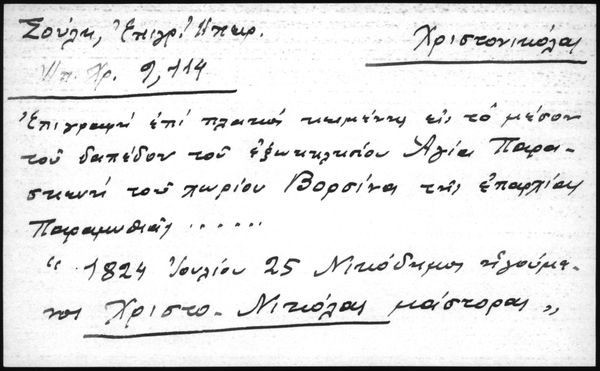 Σούλη, Ἐπιγρ. Ἠπειρ.
Χριστονικόλας
Ἠπ. Χρ. 9, 114
Ἐπιγραφή ἐπί πλακός κειμένης εἰς τό μέσον
τοῦ δαπέδου τοῦ ἐξωκκλησίου Ἁγία Παρα-
σκευή τοῦ χωρίου Βορσίνα τῆς ἐπαρχίας
Παραμυθιᾶς ......
" 1824 Ἰουλίου 25 Νικόδημος ἡγούμε-
νος Χριστο-Νικόλας μάστορας "